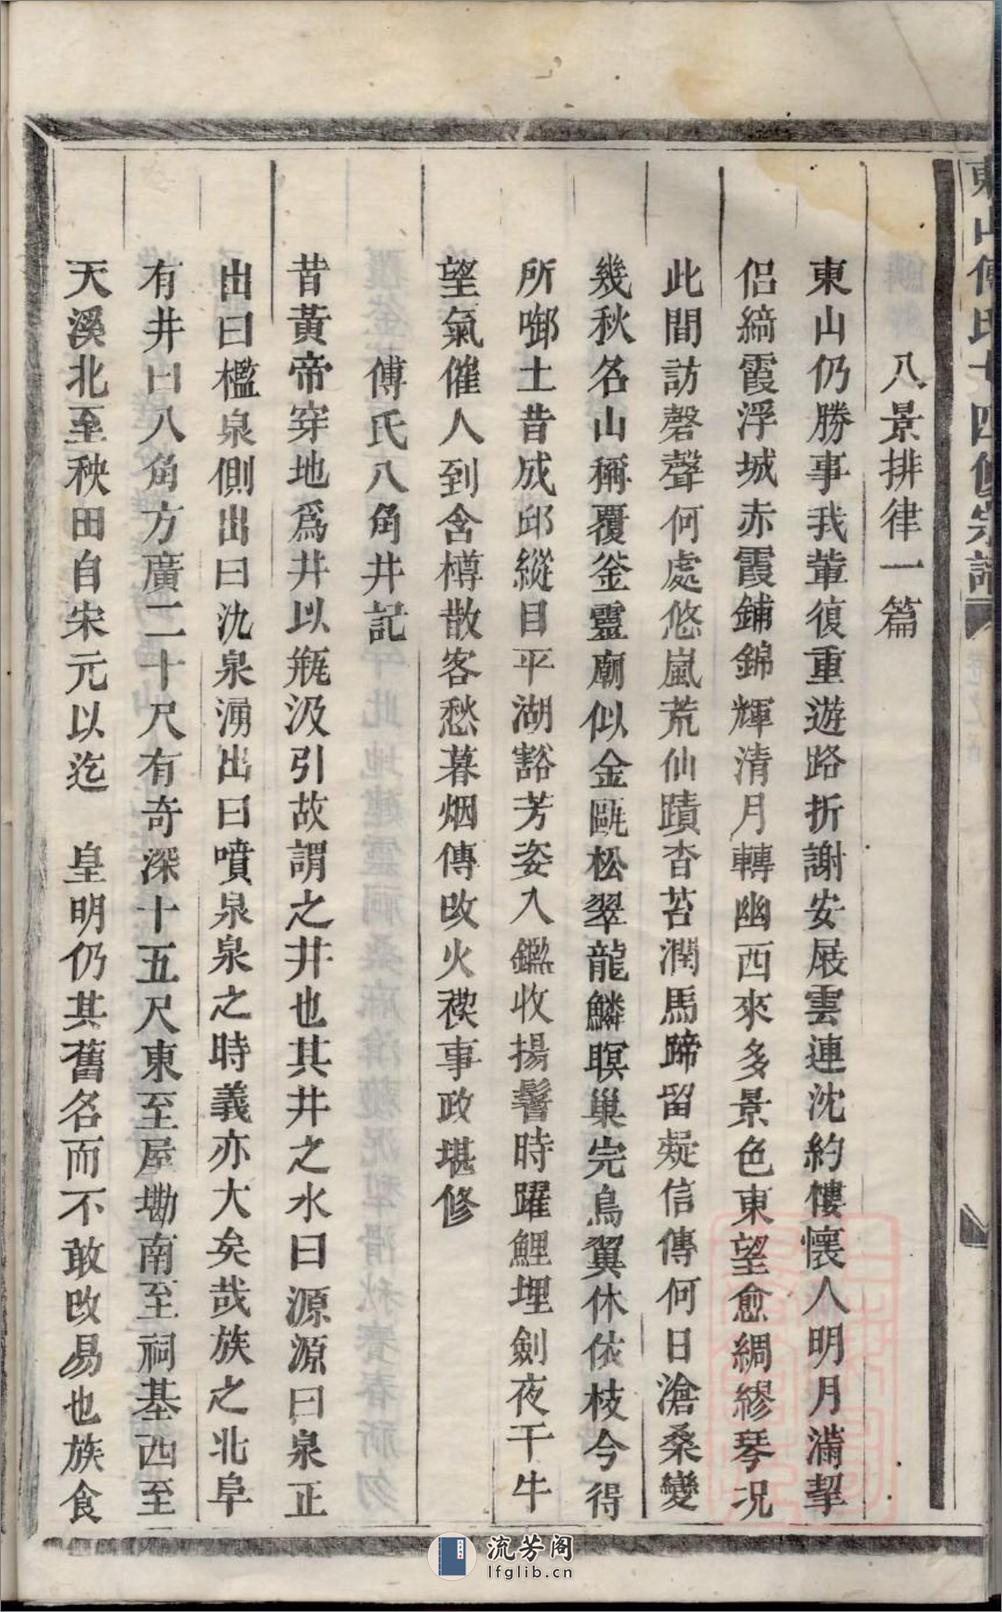 東山傅氏十四修宗譜
八景排律一篇
東山仍勝事我輩復重遊路折謝安屐雲連沈約樓懷人明月滿挈
侶綺霞浮城赤霞鋪錦輝清月轉幽西來多景色東望愈綢繆琴況
此間訪磬聲何處悠嵐荒仙蹟杳苔潤馬蹄留疑信傳何日滄桑變
幾秋名山稱覆釜靈廟似金甌松翠龍鱗暝巢完鳥翼休依枝今得
所啣土昔成邱縱目平湖豁芳姿入鑑收揚鬐時躍鯉埋劍夜干牛
望氣催人到含樽散客愁暮烟傳改火禊事政堪修
傅氏八角井記
昔黃帝穿地爲井以瓶汲引故謂之井也其井之水曰源源曰泉正
出曰檻泉側出曰氿泉湧出曰噴泉泉之時義亦大矣哉族之北阜
有井曰八角方廣二十尺有奇深十五尺東至屋墈南至祠基西至
天溪北至秧田自宋元以迄　皇明仍其舊名而不敢改易也族食
流芳阁
lfglib.cn